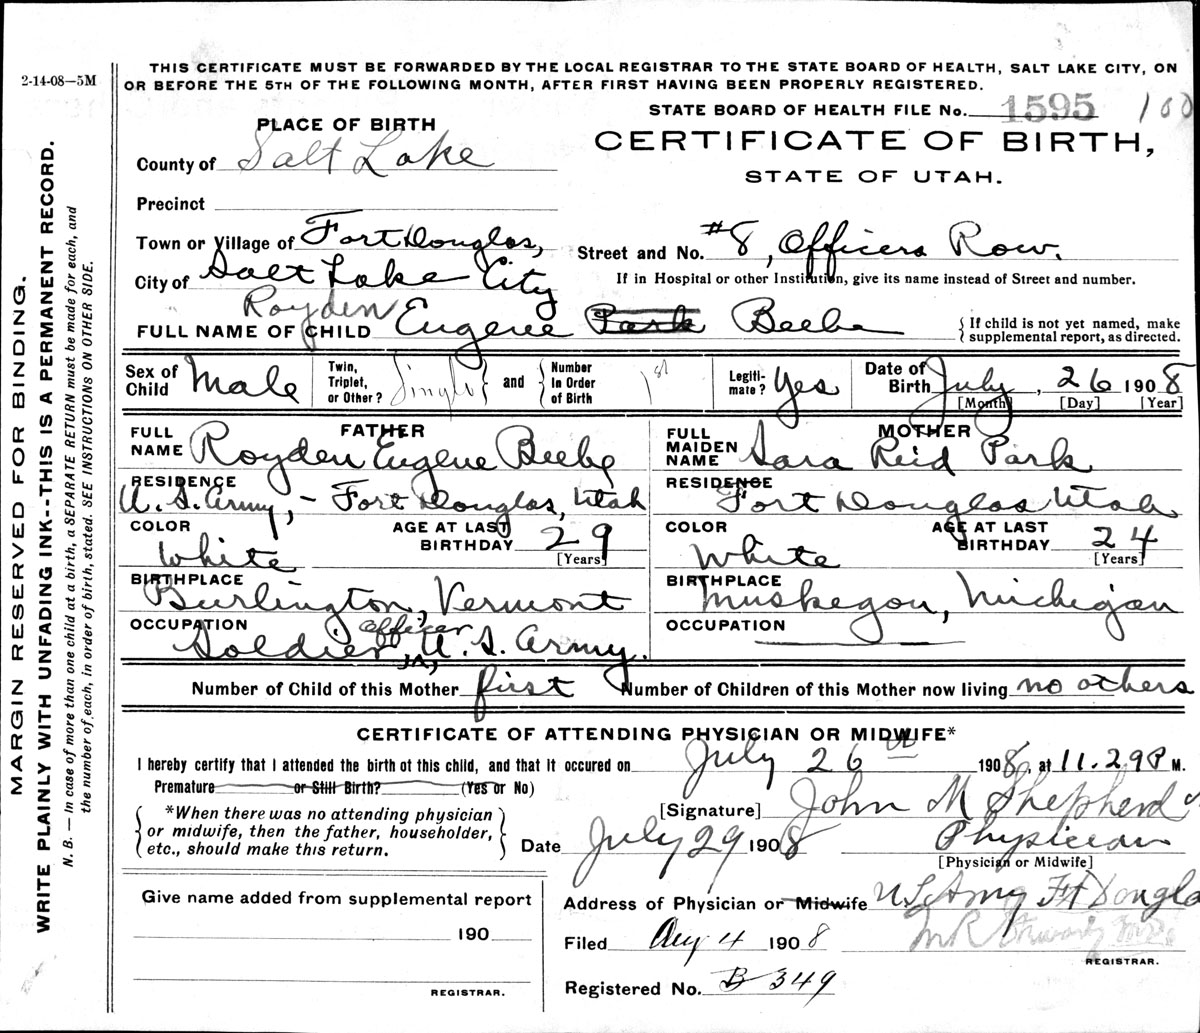 2-14-08—5M
THIS CERTIFICATE MUST BE FORWARDED BY THE LOCAL REGISTRAR TO THE STATE BOARD OF HEALTH, SALT LAKE CITY, ON
OR BEFORE THE 5TH OF THE FOLLOWING MONTH, AFTER FIRST HAVING BEEN PROPERLY REGISTERED.
STATE BOARD OF HEALTH FILE No. 1595
PLACE OF BIRTH
CERTIFICATE OF BIRTH,
STATE OF UTAH.
County of Salt Lake
Precinct
Town or Village of Fort Douglas,
Street and No. #8, Officers Row.
City of Salt Lake City
If in Hospital or other Institution, give its name instead of Street and number.
Royden
FULL NAME OF CHILD Eugene Park Beebe
{If child is not yet named, make
supplemental report, as directed.
Sex of Child Male
Twin, Triplet, or Other? Single } and { Number In Order of Birth 1st
Legiti-mate? Yes
Date of Birth July, 26 1908
[Month] [Day] [Year]
FATHER
FULL NAME Royden Eugene Beebe
RESIDENCE
U.S. Army, - Fort Douglas, Utah
COLOR White
AGE AT LAST BIRTHDAY 29
[Years]
BIRTHPLACE
Burlington, Vermont
OCCUPATION
officer
Soldier, U.S. Army.
MOTHER
FULL MAIDEN NAME Sara Reid Park
RESIDENCE
Fort Douglas Utah
COLOR White
AGE AT LAST BIRTHDAY 24
[Years]
BIRTHPLACE
Muskegon, Michigan
OCCUPATION
Number of Child of this Mother first Number of Children of this Mother now living no others
CERTIFICATE OF ATTENDING PHYSICIAN OR MIDWIFE*
I hereby certify that I attended the birth of this child, and that it occured on July 26th 1908, at 11.29 P M.
Premature or Still Birth? (Yes or No)
{*When there was no attending physician
or midwife, then the father, householder,
etc., should make this return.}
[Signature] John M Shepherd
Date July 29 1908 Physician
[Physician or Midwife]
Give name added from supplemental report
190
REGISTRAR.
Address of Physician or Midwife U S Army Ft Dougla
Filed Aug 4 1908
REGISTRAR.
Registered No. B 349
MARGIN RESERVED FOR BINDING.
WRITE PLAINLY WITH UNFADING INK--THIS IS A PERMANENT RECORD.
N. B. — In case of more than one child at a birth, a SEPARATE RETURN must be made for each, and
the number of each, in order of birth, stated. SEE INSTRUCTIONS ON OTHER SIDE.